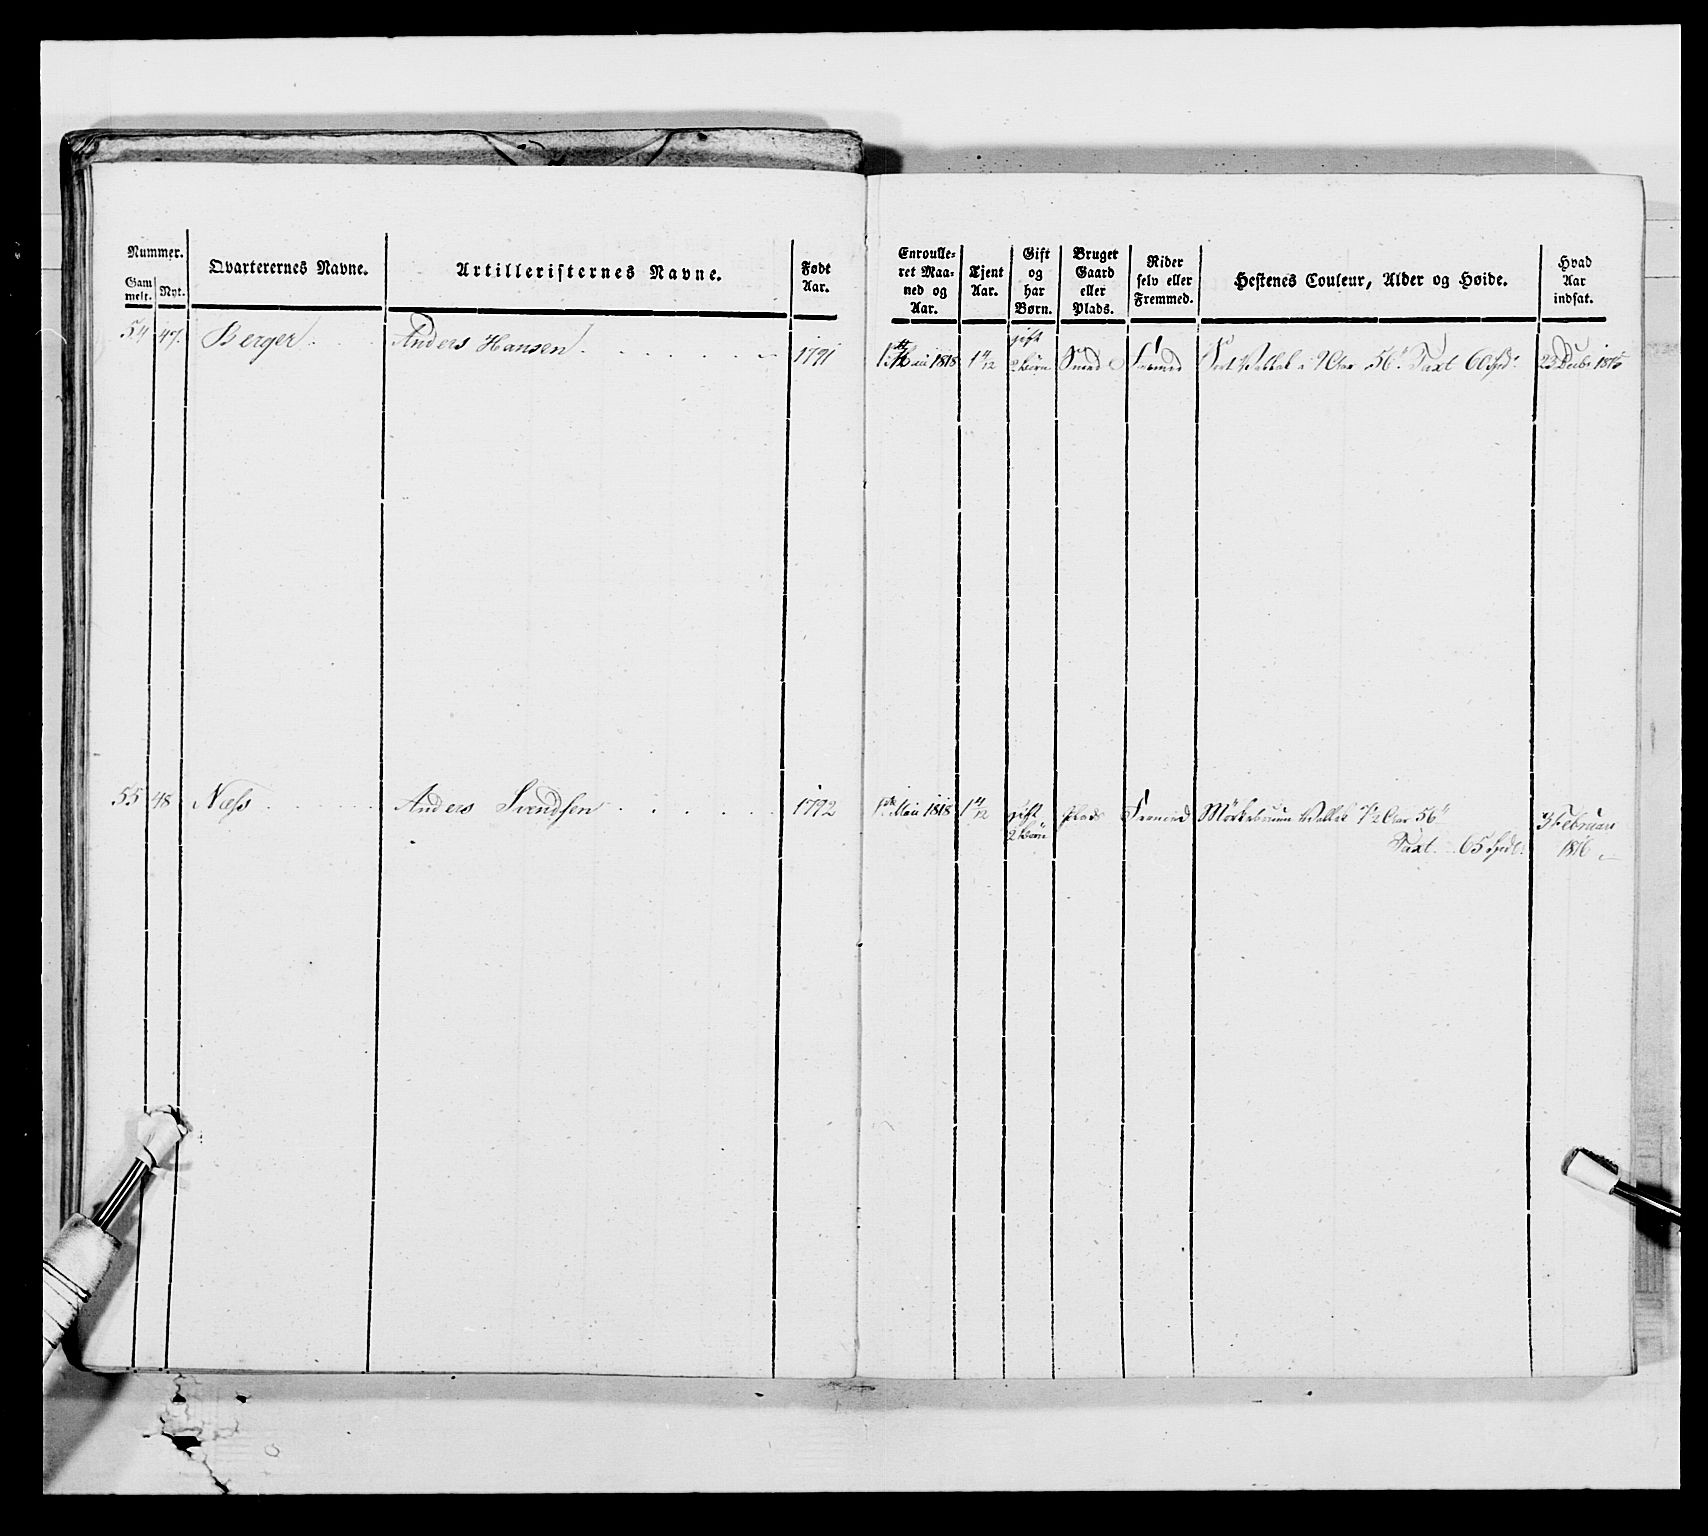 Nummer.
Gammelt.
Nyt.
Qvarterernes Navne.
Artilleristernes Navne.
Født Aar.
Enroulleret Maaned og Aar.
Tjent Aar.
Gift og har Børn.
Bruget Gaard eller Plads.
Rider selv eller Fremmed.
Hestenes Couleur, Alder og Høide.
Hvad Aar indsat.
54 47. Berger Anders Hansen 1791 1 Mai 1818 1 4/12 gift 2 börn Fremed 56" Taxt 60 Spd: 23 Decbr 1816
55 48 Næss Anders Svendsen 1792 1 Mai 1818 1 4/12 gift 2 börn plads Fremed Mörkebruun Vallak 7 Aar 56" 3 Februar
Taxt 65 Spdl: 1816